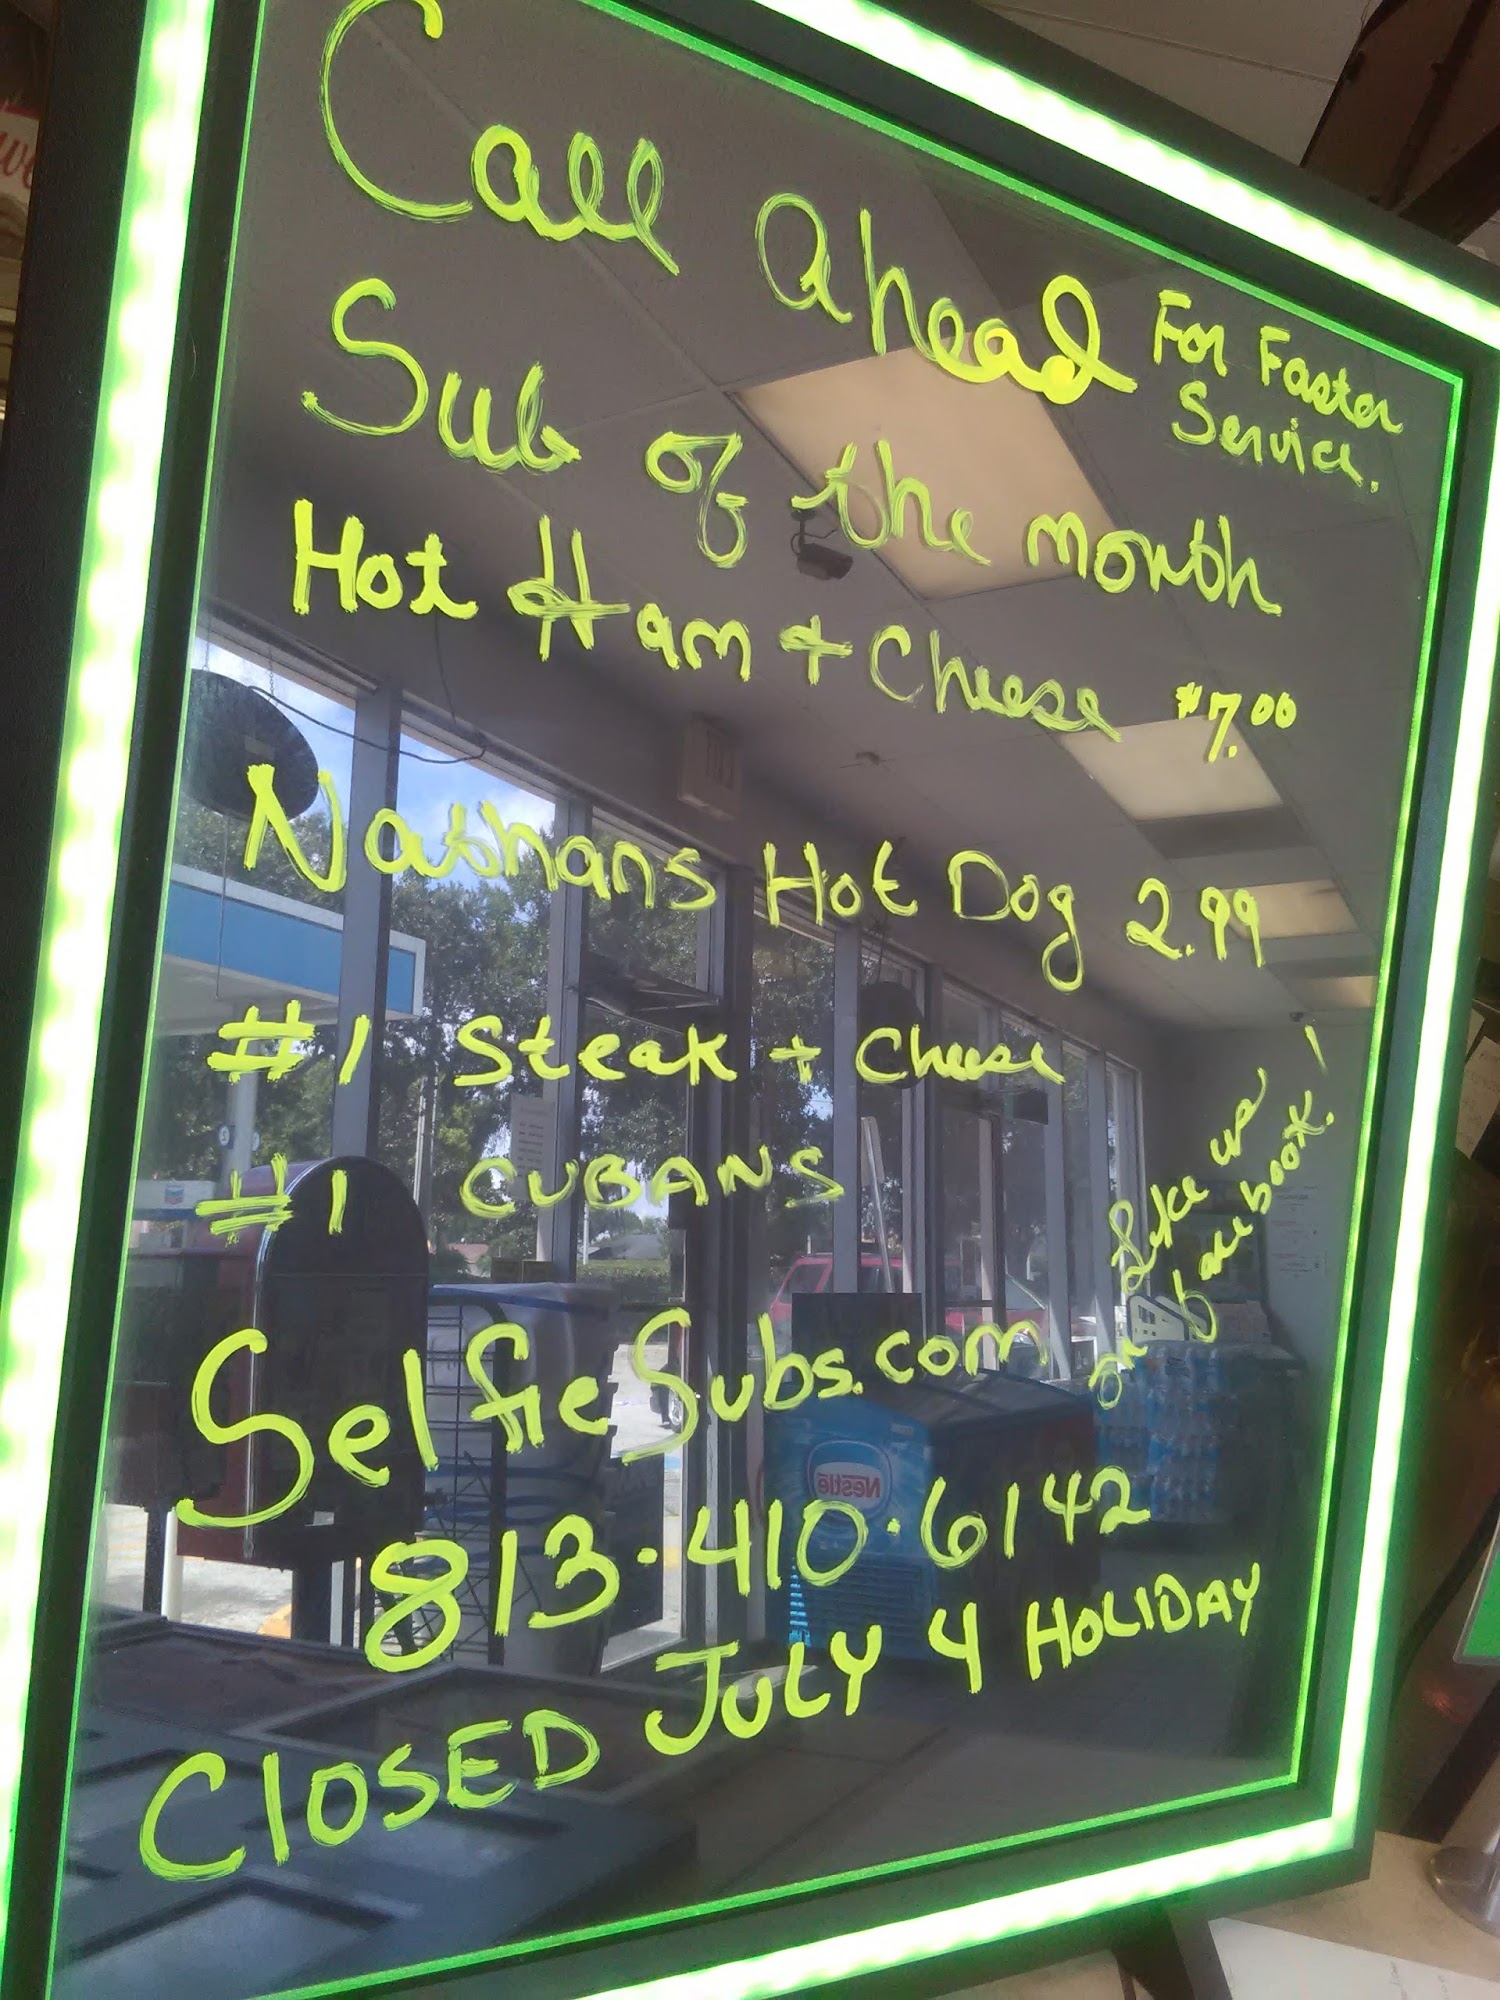 Call Ahead For Faster
Service.
Sub of the month
Hot Ham + Cheese $7.00
Nathans Hot Dog 2.99
#1 Steak + Cheese
#1 CUBANS
Like us
on Facebook!
SelfieSubs.com
813.410.6142
CLOSED JULY 4 HOLIDAY
Nestlé